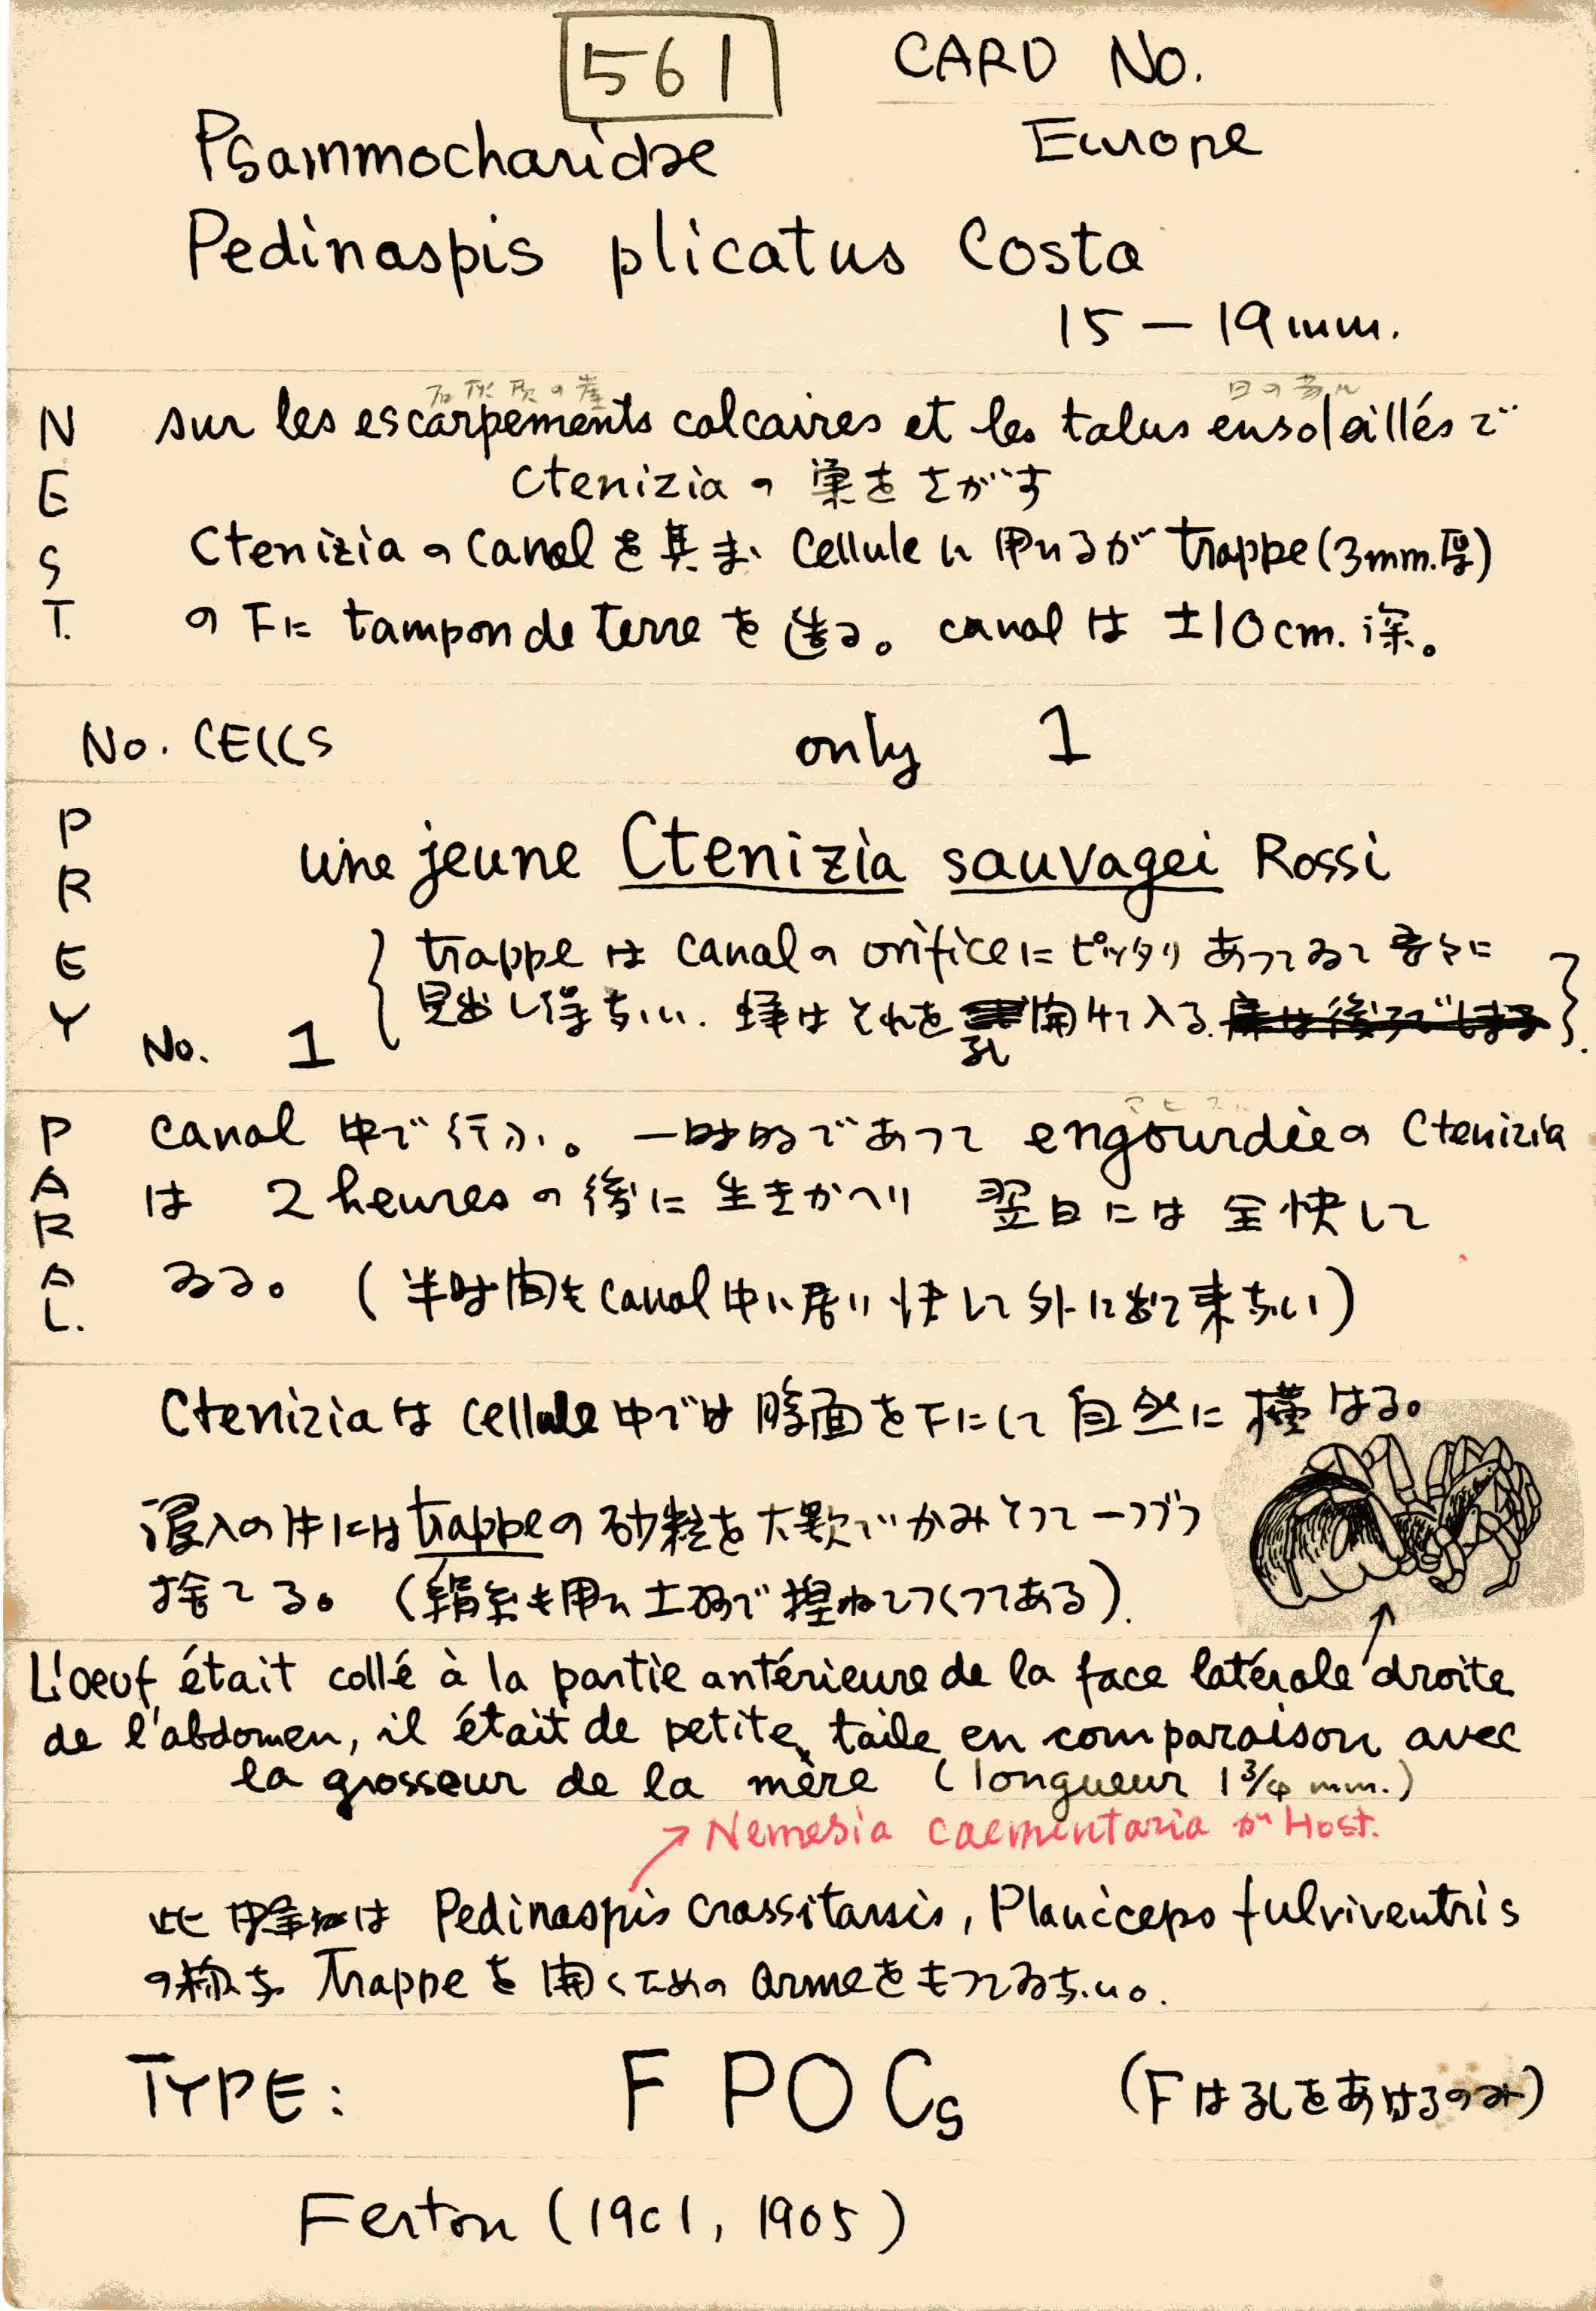 561
CARD No.
Psammocharidae
Europe
Pedinaspis plicatus Costa
15 — 19 mm.
NEST
石灰質の崖
日の当ル
sur les escarpements calcaires et les talus ensoleillés で
Cteniziaの 巣をさがす
Cteniziaのcanalを其まゝ celluleに用ゐるが trappe (3mm.厚)
の下に tampon de terre を造る。 canal は ±10cm. 深。
No. CELLS only 1
PREY
une jeune Ctenizia sauvagei Rossi
{ trappe は canalの orificeにピッタリ あつてゐて 容易に
見出し得ない. 蜂はそれを 開けて入る. }
孔
No. 1
PARAL.
マヒ
canal 中で行ふ。 一時的であつて engourdieの Ctenizia
は 2 heures の後に 生きかへり 翌日には 全快して
ゐる。 (半時間もcanal中に居り 外に出て来ない)
Cteniziaは cellule 中では腹面を下にして 自然に 横はる。
侵入の時にはtrappeの砂粒を大顎でかみとつて一つづつ
捨てる。 (絹糸も用ひ土砂で捏ねてつくつてある).
L'oeuf était collé à la partie antérieure de la face latérale droite
de l'abdomen, il était de petite taile en comparaison avec
la grosseur de la mère (longueur 1 3/4 mm.)
Nemesia caementaria が Host.
此 は Pedinaspis crassitarsis, Planiceps fulviventris
の様な Trappe を 開くための armeをもつてゐない。
TYPE: F P O Cs (F は孔をあけるのみ)
Ferton (1901, 1905)